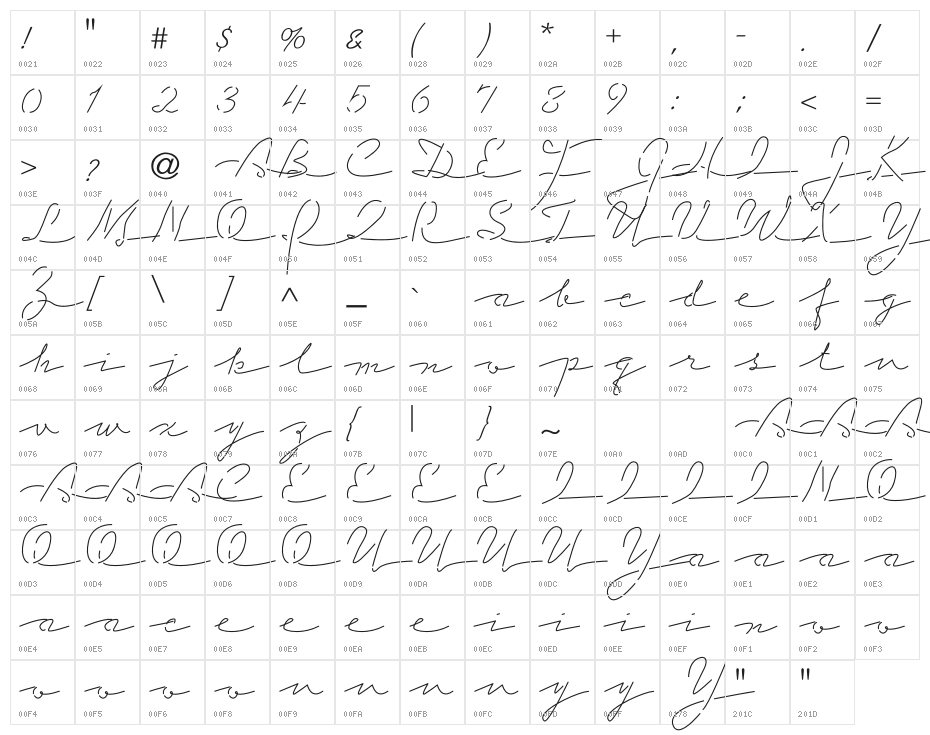 ! " # $ % & ( ) * + , - . /
0021 0022 0023 0024 0025 0026 0028 0029 002A 002B 002C 002D 002E 002F
0 1 2 3 4 5 6 7 8 9 : ; < =
0030 0031 0032 0033 0034 0035 0036 0037 0038 0039 003A 003B 003C 003D
> ? @ A B C D E F G H I J K
003E 003F 0040 0041 0042 0043 0044 0045 0046 0047 0048 0049 004A 004B
L M N O P Q R S T U V W X Y
004C 004D 004E 004F 0050 0051 0052 0053 0054 0055 0056 0057 0058 0059
Z [ \ ] ^ _ ` a b c d e f g
005A 005B 005C 005D 005E 005F 0060 0061 0062 0063 0064 0065 0066 0067
h i j k l m n o p q r s t u
0068 0069 006A 006B 006C 006D 006E 006F 0070 0071 0072 0073 0074 0075
v w x y z { | } ~ A A A
0076 0077 0078 0079 007A 007B 007C 007D 007E 00A0 00AD 00C0 00C1 00C2
A A A C E E E E I I I I N O
00C3 00C4 00C5 00C7 00C8 00C9 00CA 00CB 00CC 00CD 00CE 00CF 00D1 00D2
O O O O O U U U U Y a a a a
00D3 00D4 00D5 00D6 00D8 00D9 00DA 00DB 00DC 00DD 00E0 00E1 00E2 00E3
a a c e e e e i i i i n o o
00E4 00E5 00E7 00E8 00E9 00EA 00EB 00EC 00ED 00EE 00EF 00F1 00F2 00F3
o o o o u u u u y y Y " "
00F4 00F5 00F6 00F8 00F9 00FA 00FB 00FC 00FD 00FF 0178 201C 201D